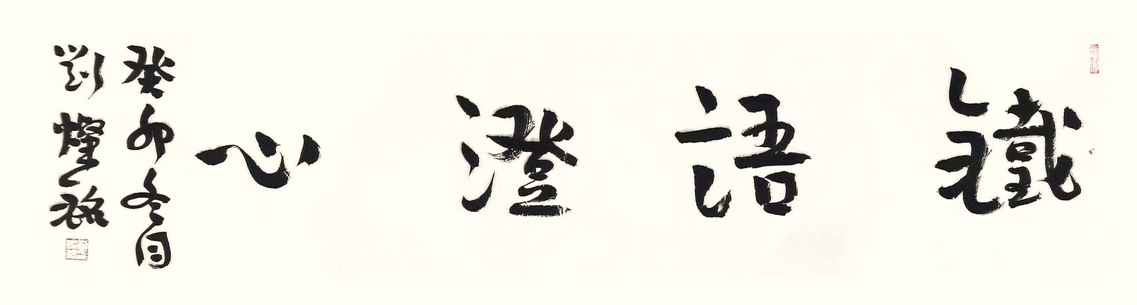 鐵語澄心
癸卯冬月
劉燦銘